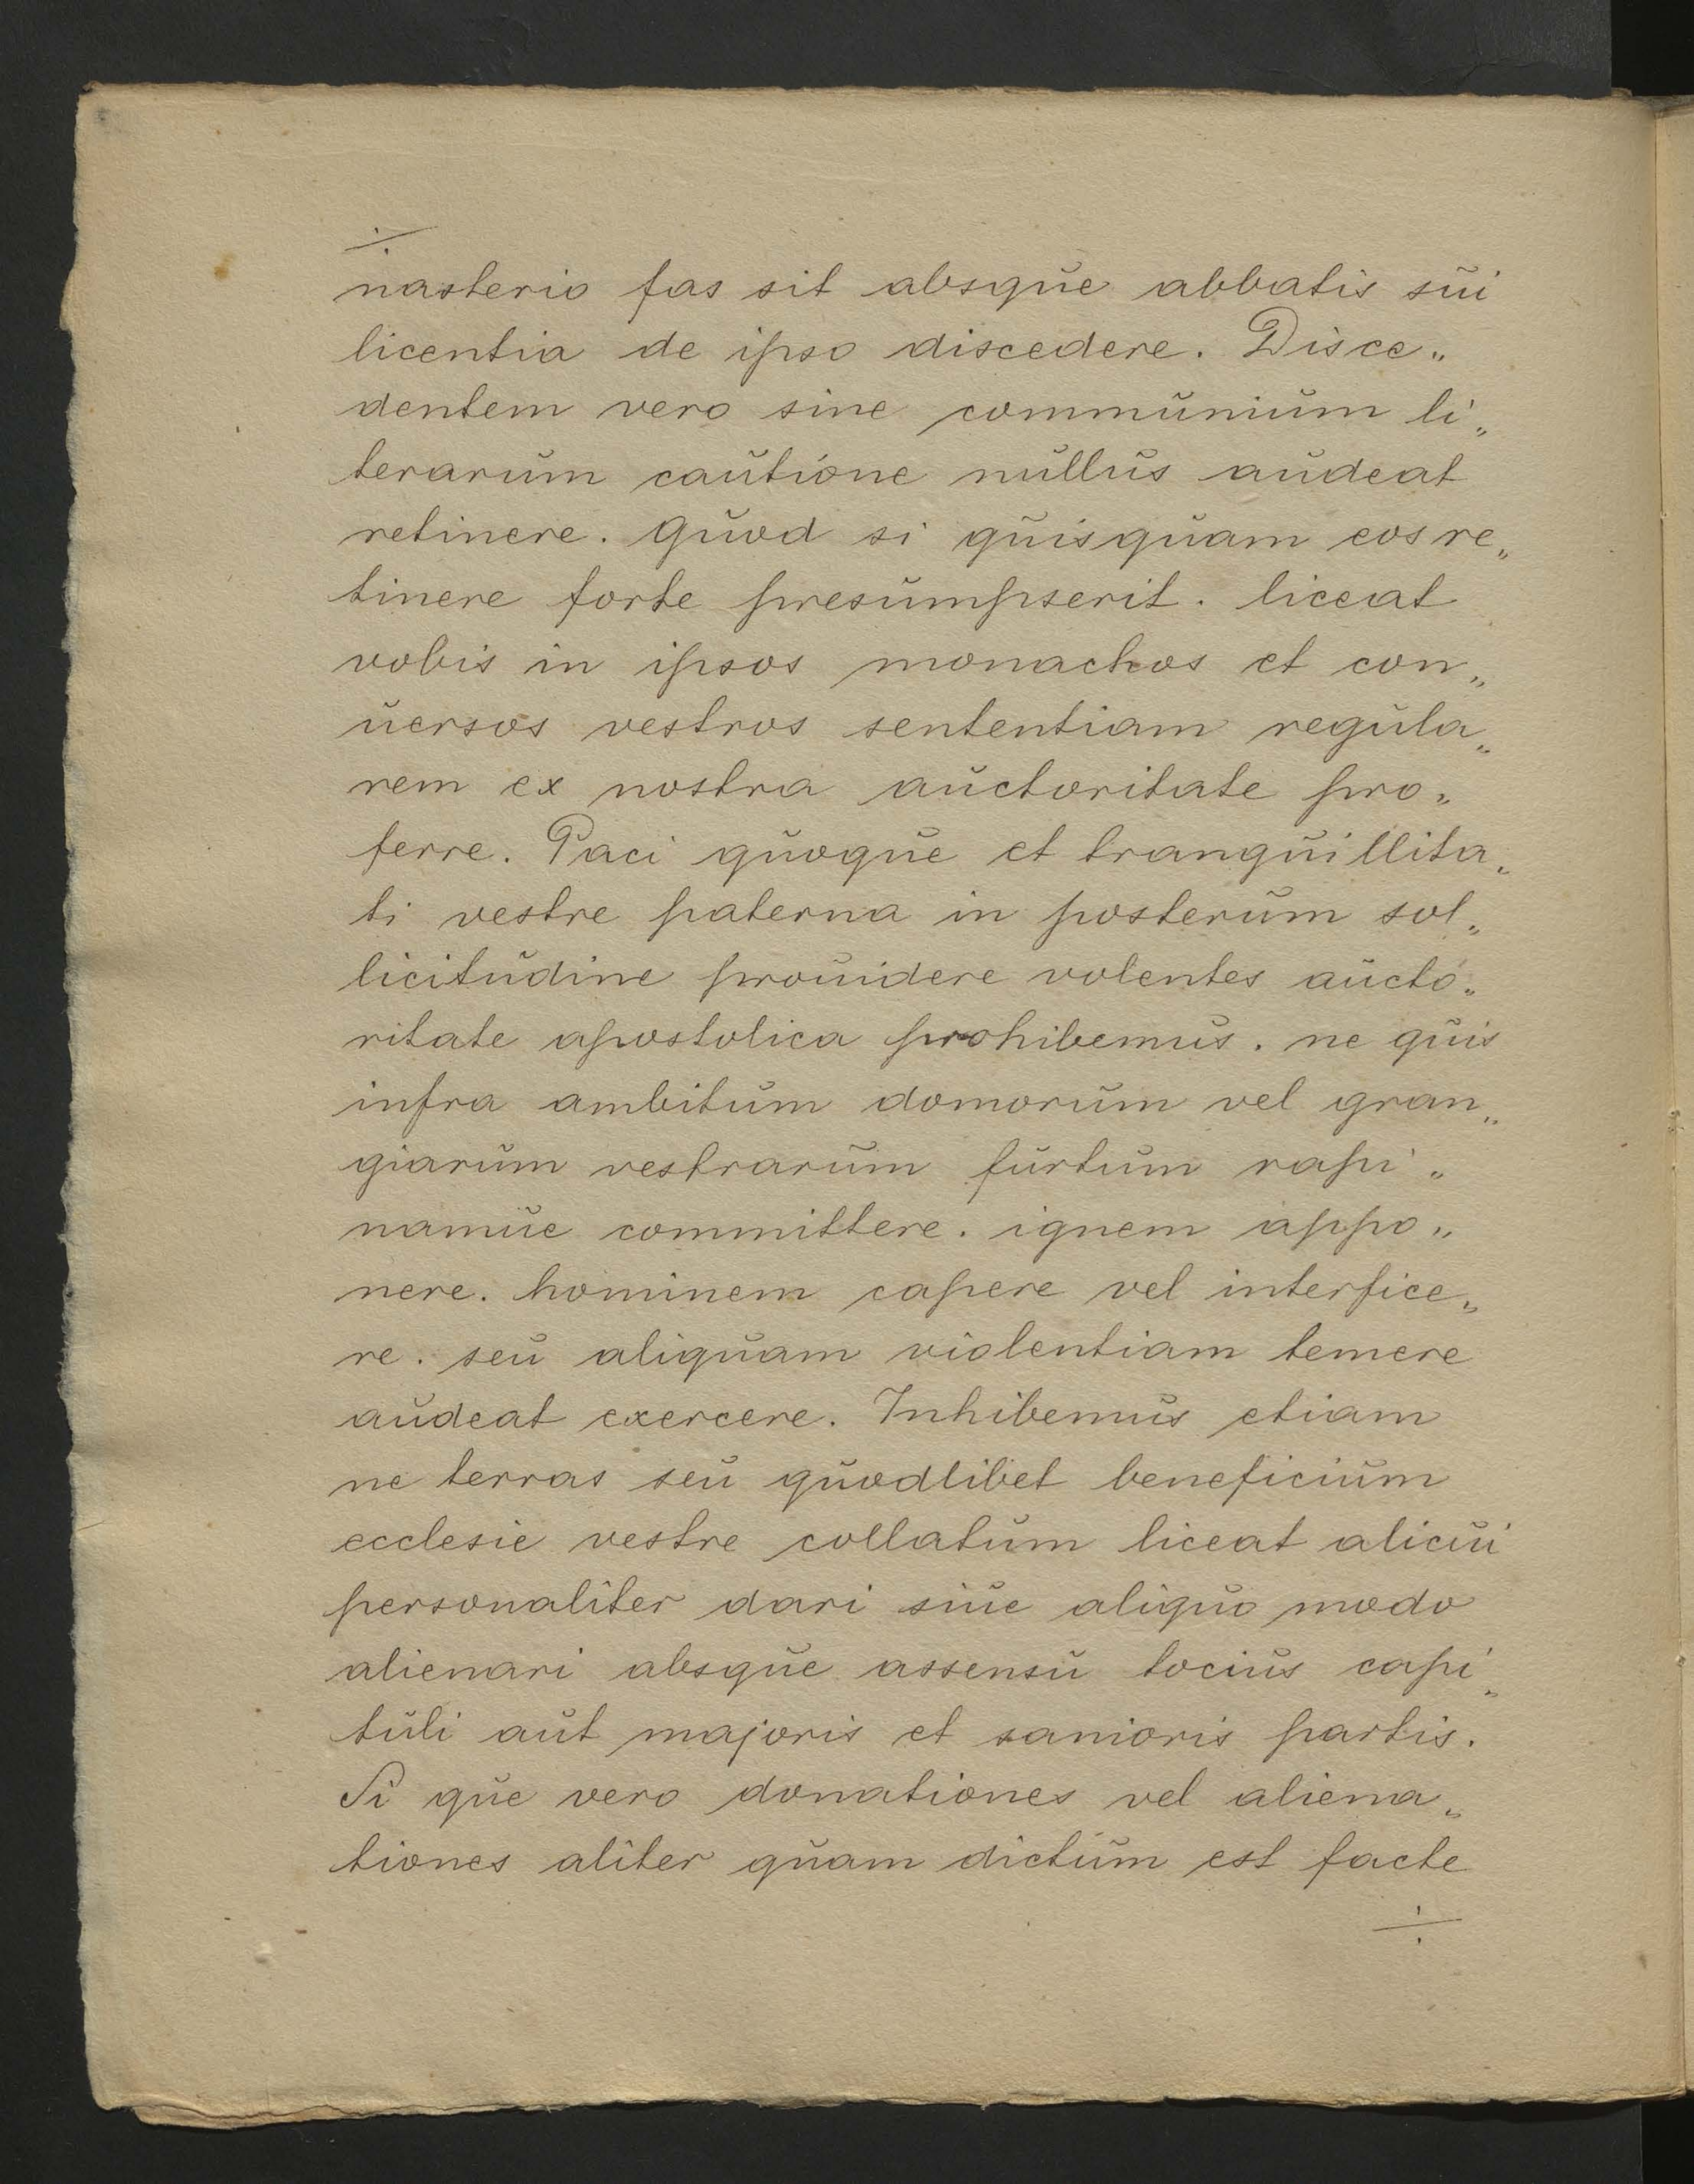 ÷
nasterio fas sit absque abbatis sui
licentia de ipso discedere. Disce„
dentem vero sine communium li„
terarum cautione nullus audeat
retinere. Quod si quisquam eos re„
tinere forte presumpserit. liceat
vobis in ipsos monachos et con„
uersos vestros sententiam regula„
rem ex nostra auctoritate pro„
ferre. Paci quoque et tranquillita„
ti vestre paterna in posterum sol„
licitudine prouidere volentes aucto„
ritate apostolica prohibemus. ne quis
infra ambitum domorum vel gran„
giarum vestrarum furtum rapi„
namue committere. ignem appo„
nere. hominem capere vel interfice„
re. seu aliquam violentiam temere
audeat exercere. Inhibemus etiam
ne terras seu quodlibet beneficium
ecclesie vestre collatum liceat alicui
personaliter dari siue aliquo modo
alienari absque assensu tocius capi„
tuli aut majoris et sanioris partis.
Si que vero donationes vel aliena„
tiones aliter quam dictum est facte
÷